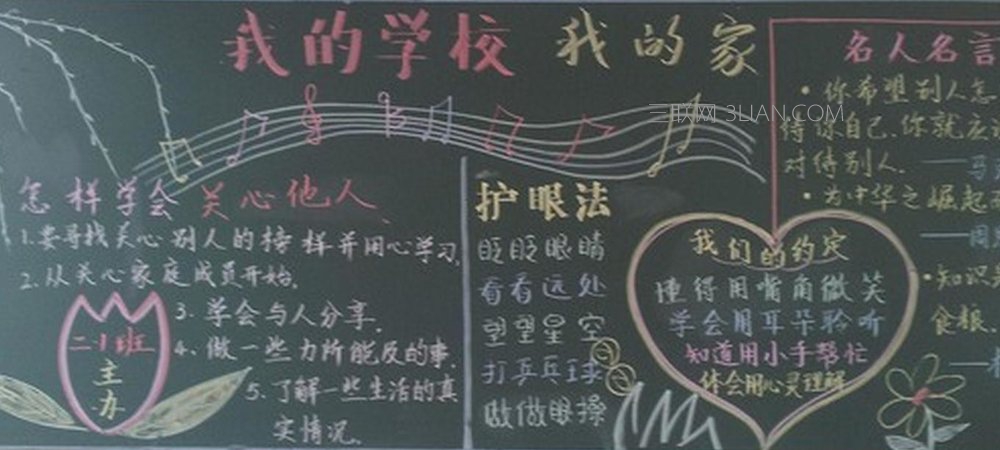 我的学校 我的家
三联网 3LIAN.COM
怎样学会关心他人、
1.要寻找关心别人的榜样并用心学习,
2.从关心家庭成员开始.
3.学会与人分享.
4、做一些力所能及的事.
5.了解一些生活的真
实情况.
二·1班
主
办
护眼法
眨眨眼睛
看看远处
望望星空
打乒乓球
做做眼操
我们的约定
懂得用嘴角微笑
学会用耳朵聆听
知道用小手帮忙
体会用心灵理解
名人名言
·你希望别人怎
待你自己.你就应
对待别人.——马
·为中华之崛起
——周
·知识
食粮.